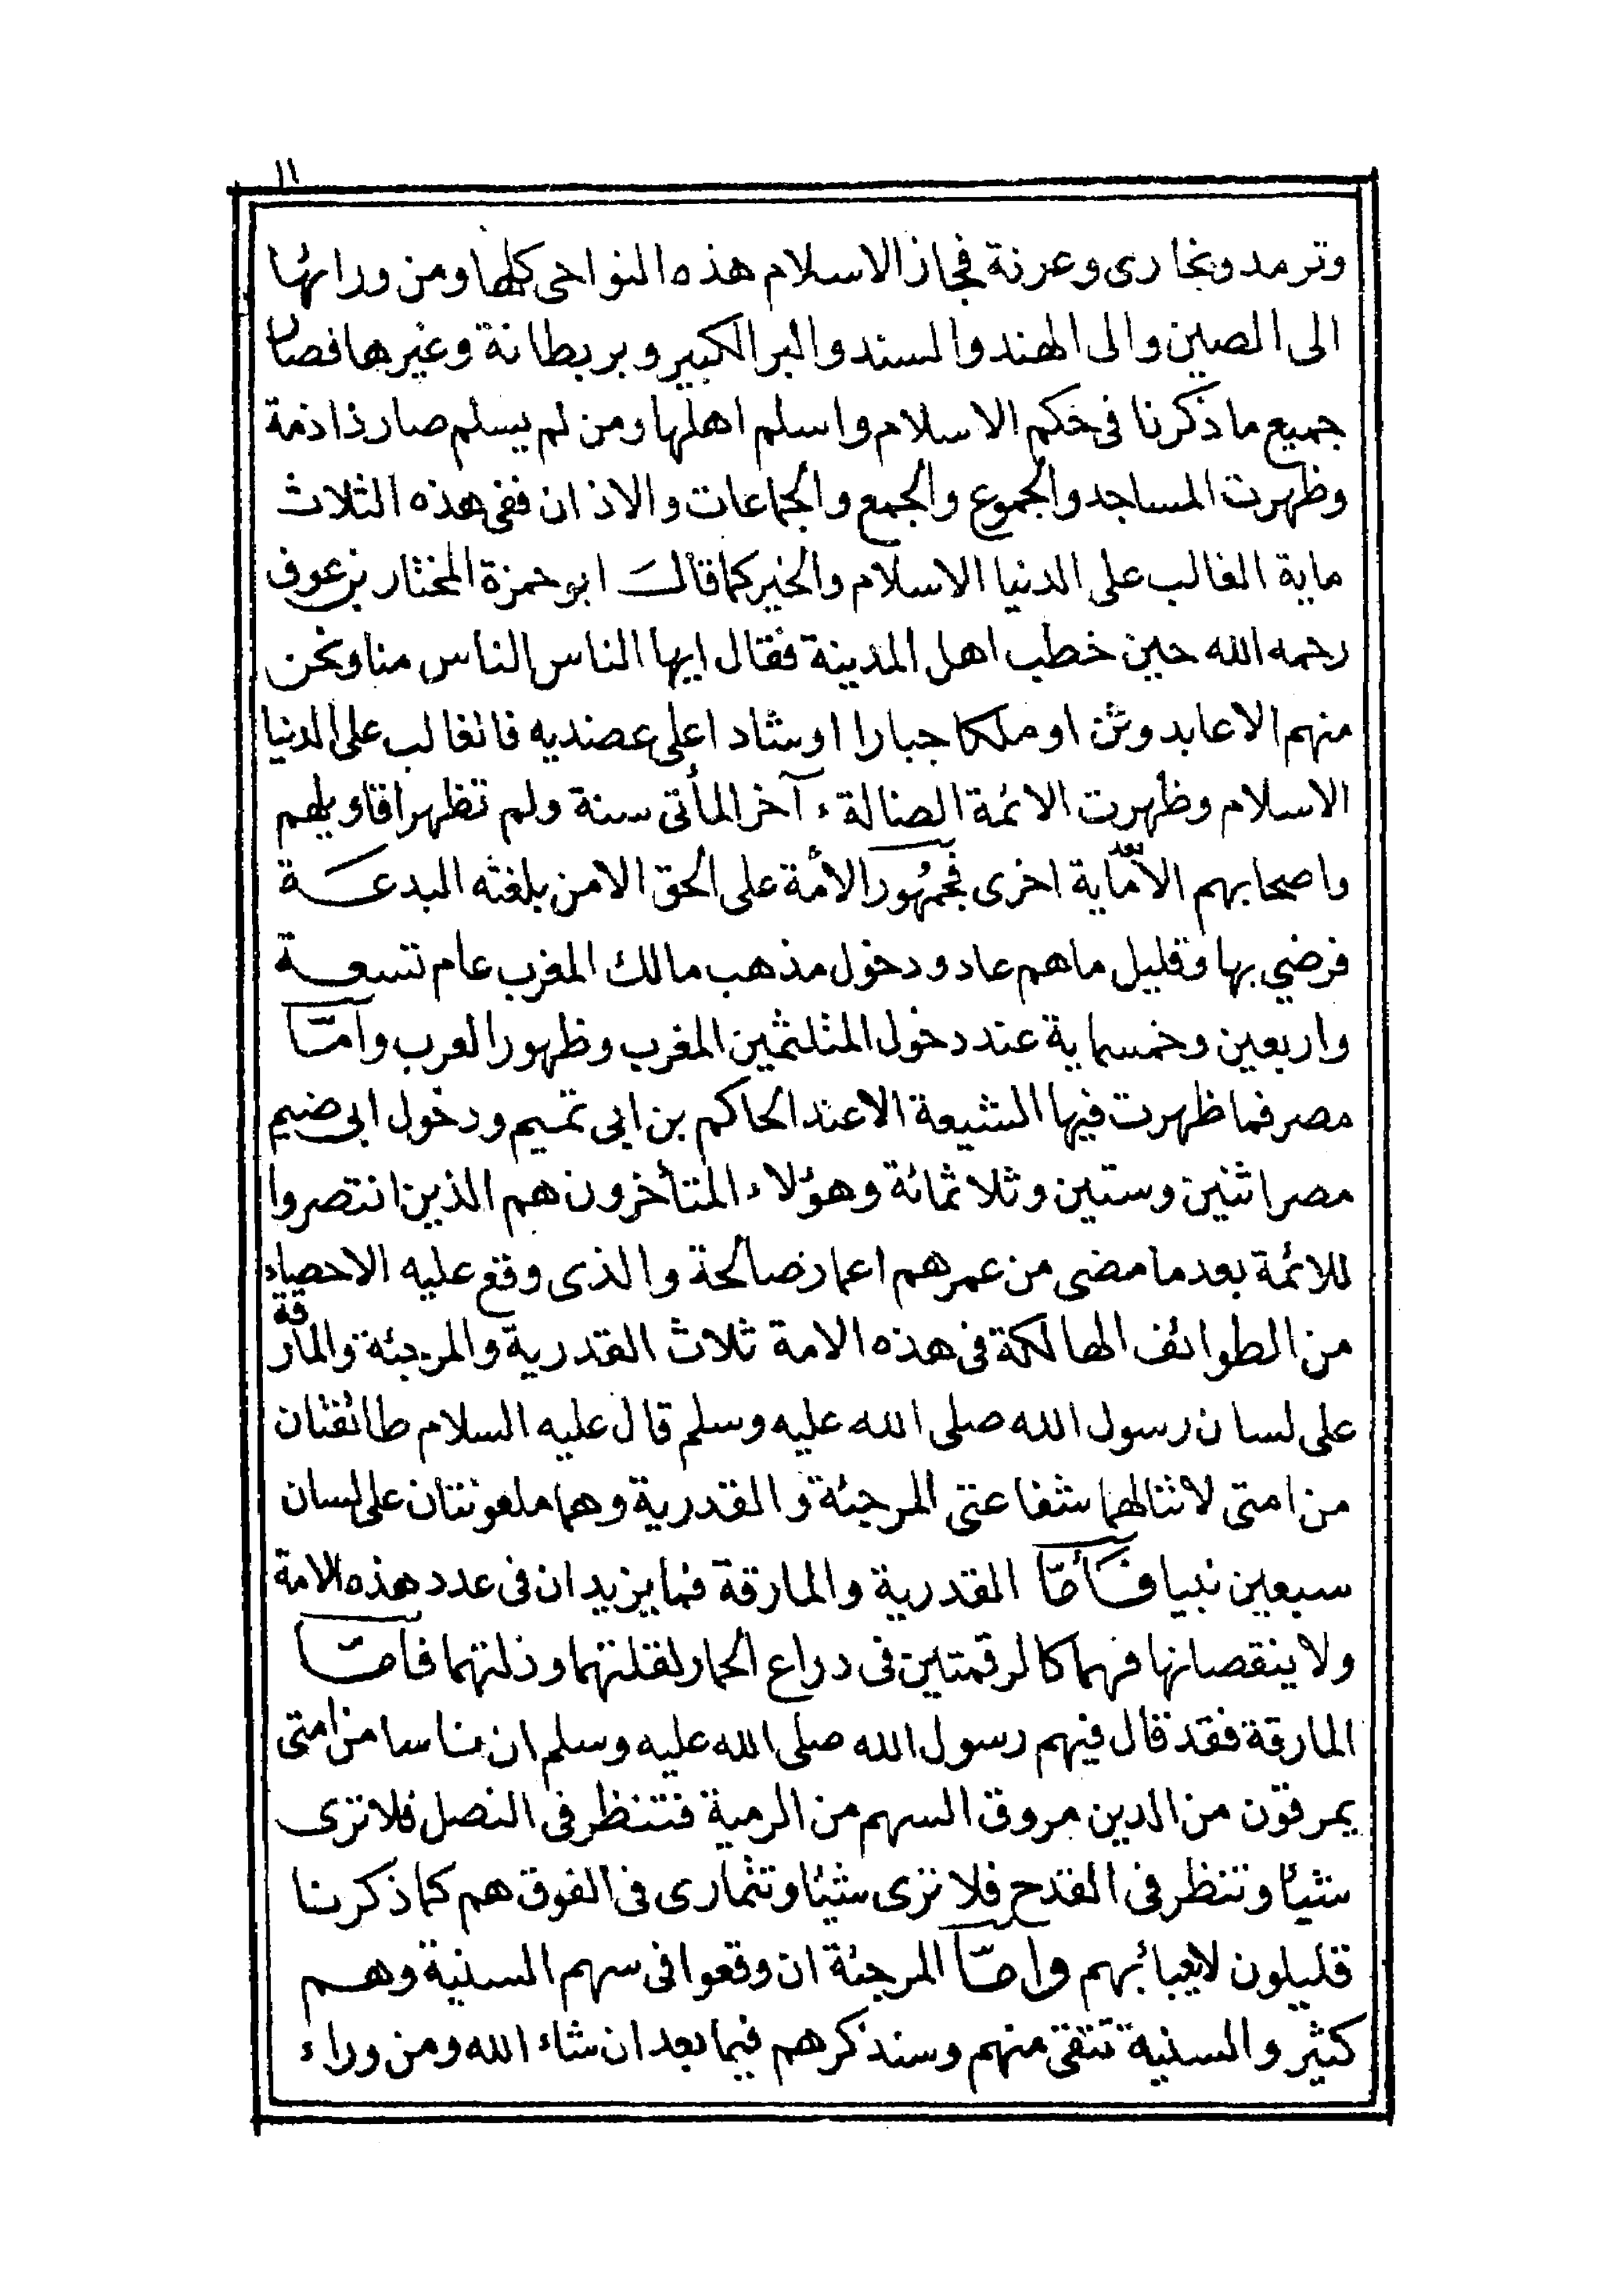 ١١
وترمد وبخارى وعرنة فجاز الاسلام هذه النواحى كلها ومن ورائها
الى الصين والى الهند والسند والبر الكبير وبربطانة وغيرها فصار
جميع ما ذكرنا فى حكم الاسلام واسلم اهلها ومن لم يسلم صار ذا ذمة
وظهرت المساجد والجموع والجمع والجماعات والاذان ففى هذه الثلاث
ماية الغالب على الدنيا الاسلام والخير كما قال ابو حمزة المختار بن عوف
رحمه الله حين خطب اهل المدينة فقال ايها الناس الناس منا ونحن
منهم الا عابد وثن او ملكا جبارا او شادا على عضديه فالغالب على الدنيا
الاسلام وظهرت الائمة الضالة ء آخر المأتى سنة ولم تظهر اقاويلهم
واصحابهم الا بعد ماية اخرى فجمهور الأمة على الحق الا من بلغته البدعة
فرضي بها وقليل ما هم عاد ودخول مذهب مالك المغرب عام تسعة
واربعين وخمسماية عند دخول المثلثمين المغرب وظهور العرب وأمّا
مصر فما ظهرت فيها الشيعة الا عند الحاكم بن ابى تميم ودخول ابى ضيم
مصر اثنين وستين وثلاثمائة وهؤلاء المتأخرون هم الذين انتصروا
للائمة بعد ما مضى من عمرهم اعمار صالحة والذى وقع عليه الاحصاء
من الطوائف الهالكة فى هذه الامة ثلاث القدرية والمرجئة والمارقة
على لسان رسول الله صلى الله عليه وسلم قال عليه السلام طائفتان
من امتى لا تنالهما شفاعتى المرجئة والقدرية وهما ملعونتان على لسان
سبعين نبيا فأمّا القدرية والمارقة فما يزيدان فى عدد هذه الامة
ولا ينقصانها فهما كالرقمتين فى دراع الحمار لقلتهما وذلتهما فأمّا
المارقة فقد قال فيهم رسول الله صلى الله عليه وسلم ان ناسا من امتى
يمرقون من الدين مروق السهم من الرمية فتنظر فى النصل فلا ترى
شيئا وتنظر فى القدح فلا ترى شيئا وتتمارى فى الفوق هم كما ذكرنا
قليلون لايعبأ بهم وامّا المرجئة ان وقعوا فى سهم السنية وهم
كثير والسنية تنتقى منهم وسنذكرهم فيما بعد ان شاء الله ومن وراء